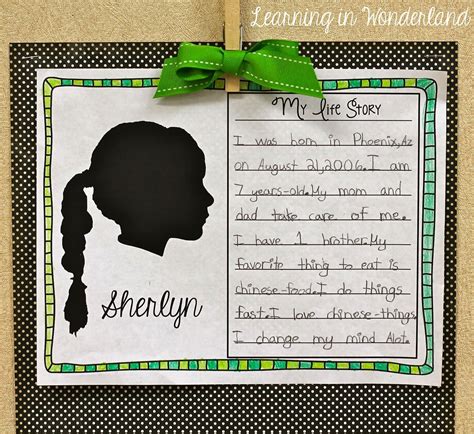 Learning in Wonderland
My Life Story
I was born in Phoenix,Az
on August 21,2006.I am
7 years-old.My mom and
dad take care of me.
I have 1 brother.My
favorite thing to eat is
chinese-food.I do things
fast.I love chinese-things.
I change my mind Alot.
Sherlyn